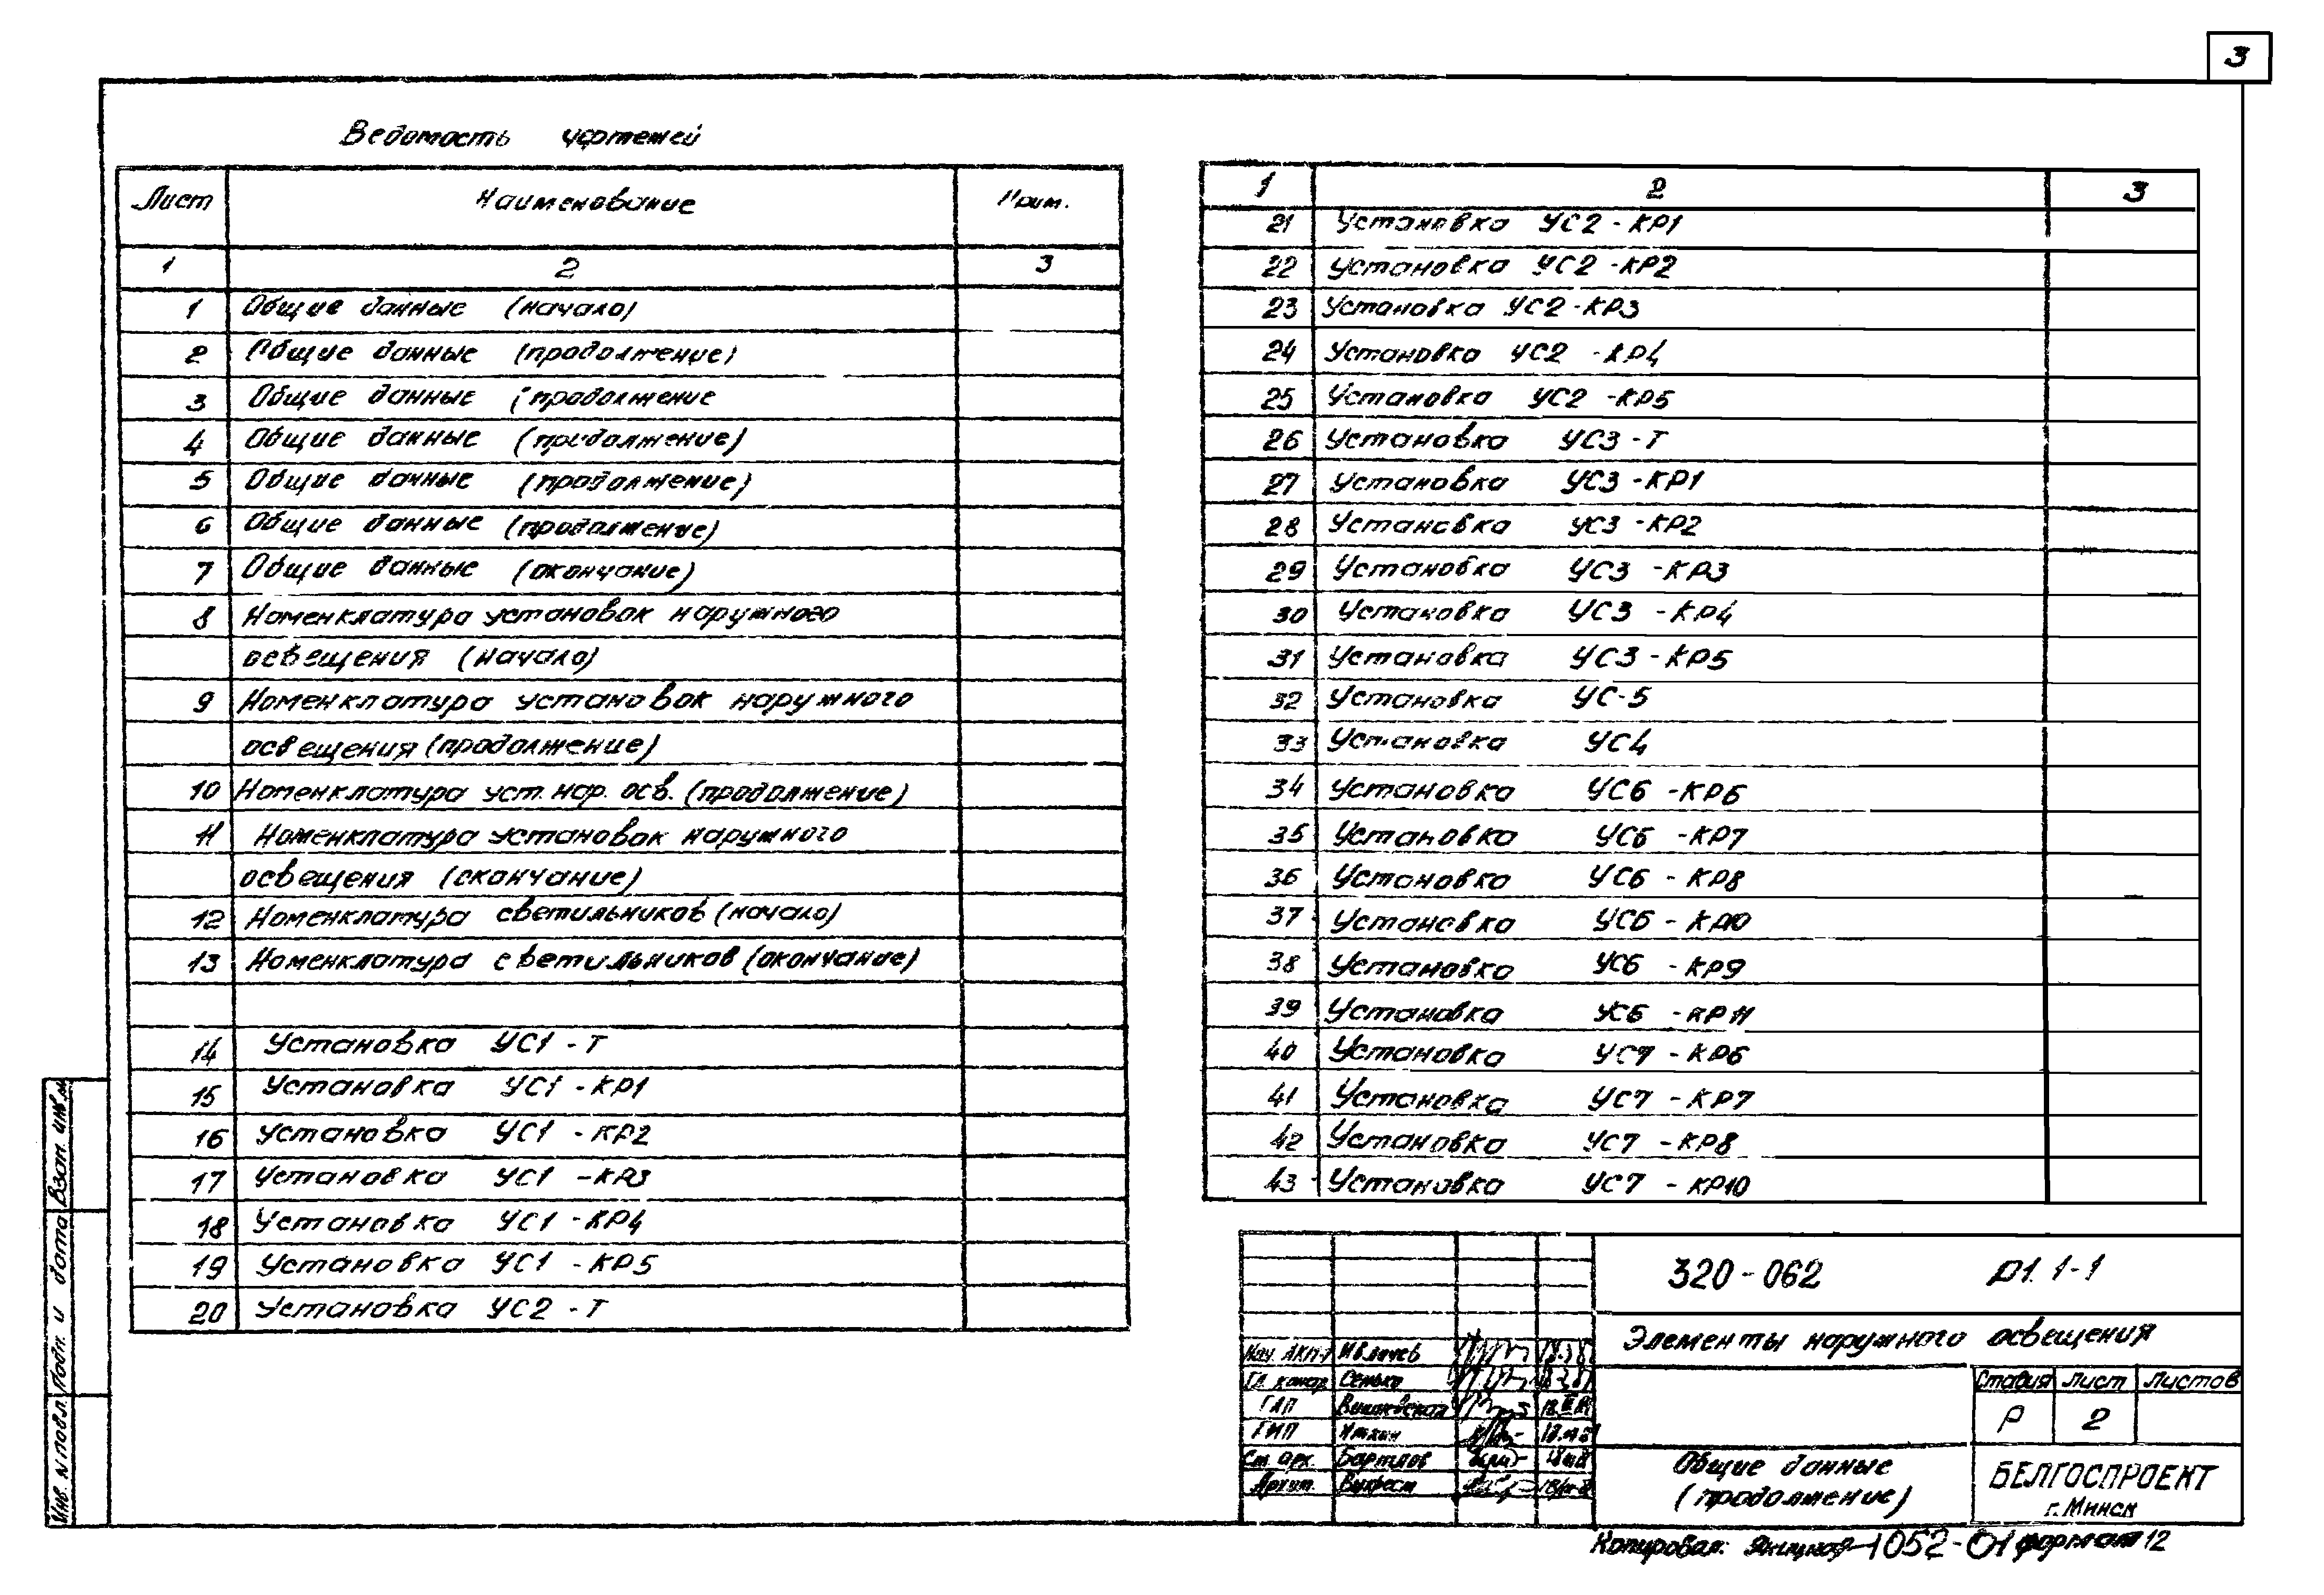 3
Ведомость чертежей
Лист Наименование Прим.
1 2 3
1 Общие данные (начало)
2 Общие данные (продолжение)
3 Общие данные (продолжение
4 Общие данные (продолжение)
5 Общие данные (продолжение)
6 Общие данные (продолжение)
7 Общие данные (окончание)
8 Номенклатура установок наружного
освещения (начало)
9 Номенклатура установок наружного
освещения (продолжение)
10 Номенклатура уст. нар. осв. (продолжение)
11 Номенклатура установок наружного
освещения (окончание)
12 Номенклатура светильников (начало)
13 Номенклатура светильников (окончание)
14 Установка УС1 - Т
15 Установка УС1 - КР1
16 Установка УС1 - КР2
17 Установка УС1 - КР3
18 Установка УС1 - КР4
19 Установка УС1 - КР5
20 Установка УС2 - Т
1 2 3
21 Установка УС2 - КР1
22 Установка УС2 - КР2
23 Установка УС2 - КР3
24 Установка УС2 - КР4
25 Установка УС2 - КР5
26 Установка УС3 - Т
27 Установка УС3 - КР1
28 Установка УС3 - КР2
29 Установка УС3 - КР3
30 Установка УС3 - КР4
31 Установка УС3 - КР5
32 Установка УС-5
33 Установка УС4
34 Установка УС6 - КР6
35 Установка УС6 - КР7
36 Установка УС6 - КР8
37 Установка УС6 - КР10
38 Установка УС6 - КР9
39 Установка УС6 - КР11
40 Установка УС7 - КР6
41 Установка УС7 - КР7
42 Установка УС7 - КР8
43 Установка УС7 - КР10
320-062 р1. 1-1
Элементы наружного освещения
Стадия Лист Листов
Р 2
Общие данные
(продолжение)
БЕЛГОСПРОЕКТ
г. Минск
Нач. АКМ-
Гл. констр. Сенько
ГАП
ГИП
Ст. арх.
Архит.
Взам. инв.
Подп. и дата
Инв. N подл.
Копировал: 1052-01 формат 12